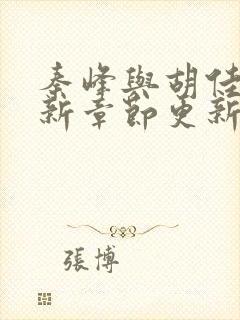 秦峰與胡佳
新章節更新
張博